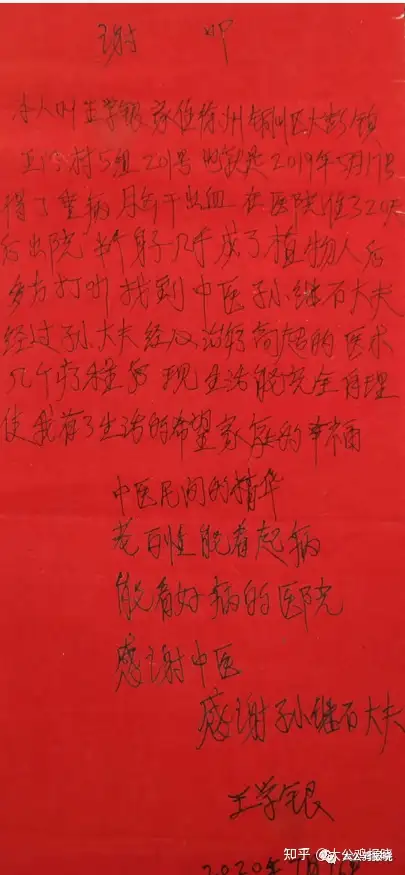 谢
本人叫王学银家住徐州铜山区大彭镇
村5组201号 2019年5月17号
得了重病脑干出血在医院住了32天
后出院半个身子几乎成了植物人后
多方打听找到中医孙继石大夫
经过孙大夫 治疗高超的医术
几个疗程后现生活能完全自理
使我有了生活的希望家庭的幸福
中医民间的精华
老百姓能看起病
能看好病的医院
感谢中医
感谢孙继石大夫
王学银
2020年7月16号
知乎 @大公鸡报晓